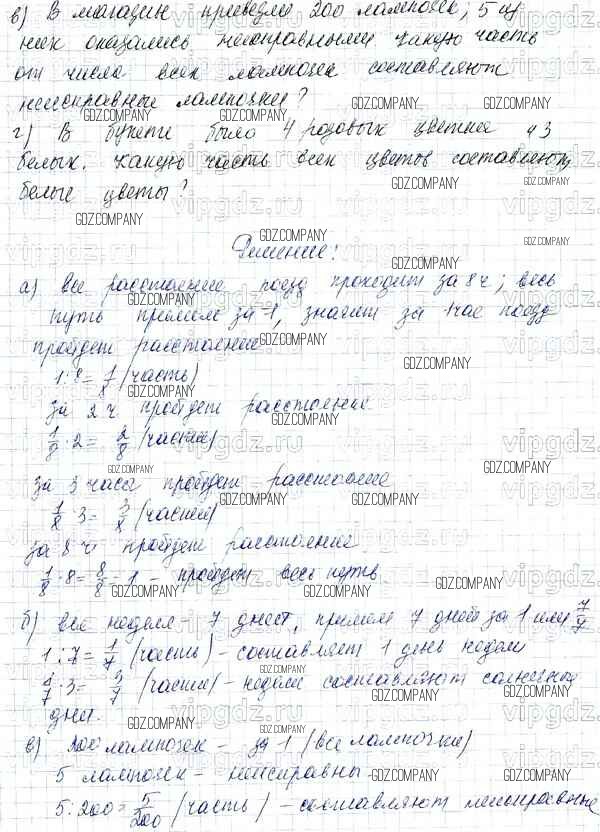 в) В магазин привезли 200 лампочек, 5 из
них оказались неисправными. Какую часть
от числа всех лампочек составляют
неисправные лампочки?
г) В букете было 4 розовых цветка и 3
белых. Какую часть всех цветов составляют
белые цветы?
Решение:
а) все расстояние поезд проходит за 8 ч; весь
путь примем за 1, значит за 1 час поезд
пройдет расстояние
1:8=1/8 (часть)
за 2 ч пройдет расстояние
1/8·2=2/8 (части)
за 3 часа пройдет расстояние
1/8·3=3/8 (части)
за 8 ч пройдет расстояние
1/8·8=8/8=1 - пройдет весь путь
б) вся неделя - 7 дней, примем 7 дней за 1 или 7/7
1:7=1/7 (часть) - составляет 1 день недели
1/7·3=3/7 (части) - недели составляют солнечные
дни.
в) 200 лампочек - за 1 (все лампочки)
5 лампочек - неисправны
5:200=5/200 (часть) - составляют неисправные
GDZ.COMPANY
vipgdz.ru